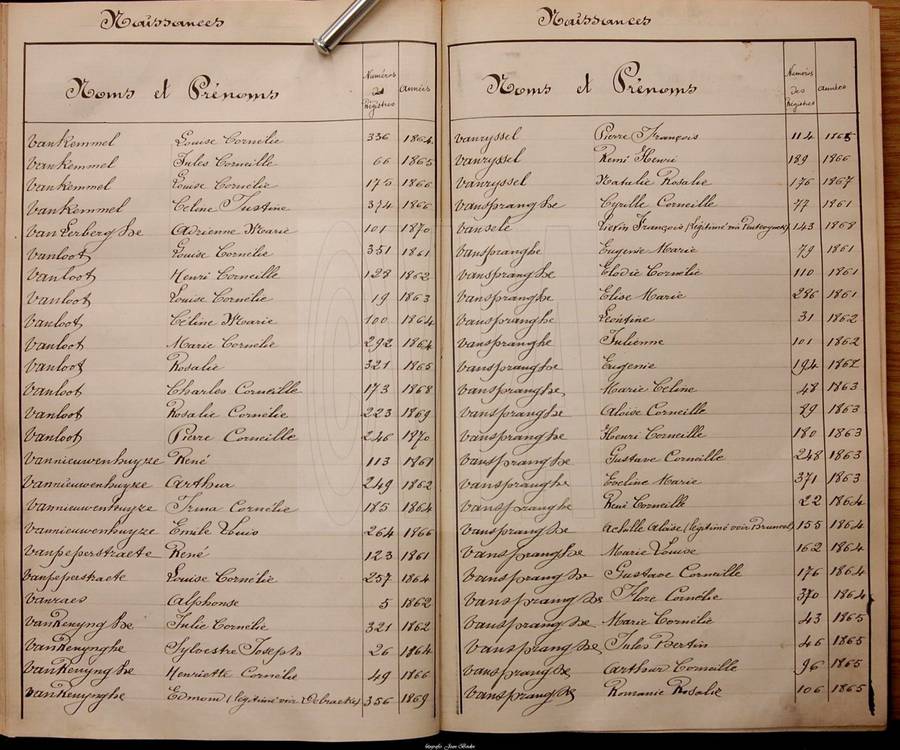 Naissances
Noms et Prénoms Numéros des Régistres Années
Vankemmel Louise Cornélie 336 1864
Vankemmel Jules Corneille 66 1865
Vankemmel Louise Cornélie 175 1866
Vankemmel Celine Justine 374 1866
Van Lerberghe Adrienne Marie 101 1870
Vanloot Louise Cornélie 351 1861
Vanloot Henri Corneille 128 1862
Vanloot Louise Cornélie 19 1863
Vanloot Céline Marie 100 1864
Vanloot Marie Cornélie 292 1864
Vanloot Rosalie 321 1865
Vanloot Charles Corneille 173 1868
Vanloot Rosalie Cornélie 223 1869
Vanloot Pierre Corneille 246 1870
Vannieuwenhuyze René 113 1861
Vannieuwenhuyze Arthur 249 1862
Vannieuwenhuyze Irma Cornélie 185 1864
Vannieuwenhuyze Emile Louis 264 1866
Vanpeperstraete René 123 1861
Vanpeperstraete Louise Cornélie 257 1864
Vanraes Alphonse 5 1862
VanRenynghe Julie Cornélie 321 1862
VanRenynghe Sylvestre Joseph 26 1864
VanRenynghe Henriette Cornélie 49 1866
VanRenynghe Edmond (légitimé voir Debracke) 356 1869
Naissances
Noms et Prénoms Numéros Des Régistres Années
Vanryssel Pierre François 114 1865
Vanryssel Remi Henri 189 1866
Vanryssel Natalie Rosalie 176 1867
Vanspranghe Cyrille Corneille 77 1861
Vansele Liévin François (légitimé voir 143 1868
Vanspranghe Eugenie Marie 79 1861
Vanspranghe Elodie Cornélie 110 1861
Vanspranghe Elise Marie 286 1861
Vanspranghe Léontine 31 1862
Vanspranghe Julienne 101 1862
Vanspranghe Eugenie 194 1862
Vanspranghe Marie Celine 48 1863
Vanspranghe Aloise Corneille 89 1863
Vanspranghe Henri Corneille 180 1863
Vanspranghe Gustave Corneille 248 1863
Vanspranghe Eveline Marie 371 1863
Vanspranghe Remi Corneille 22 1864
Vanspranghe Achille Aloise (légitimé voir Bruneel) 155 1864
Vanspranghe Marie Louise 162 1864
Vanspranghe Gustave Corneille 176 1864
Vanspranghe Flore Cornélie 370 1864
Vanspranghe Marie Cornélie 43 1865
Vanspranghe Jules Bertin 46 1865
Vanspranghe Arthur Corneille 96 1865
Vanspranghe Romanie Rosalie 106 1865